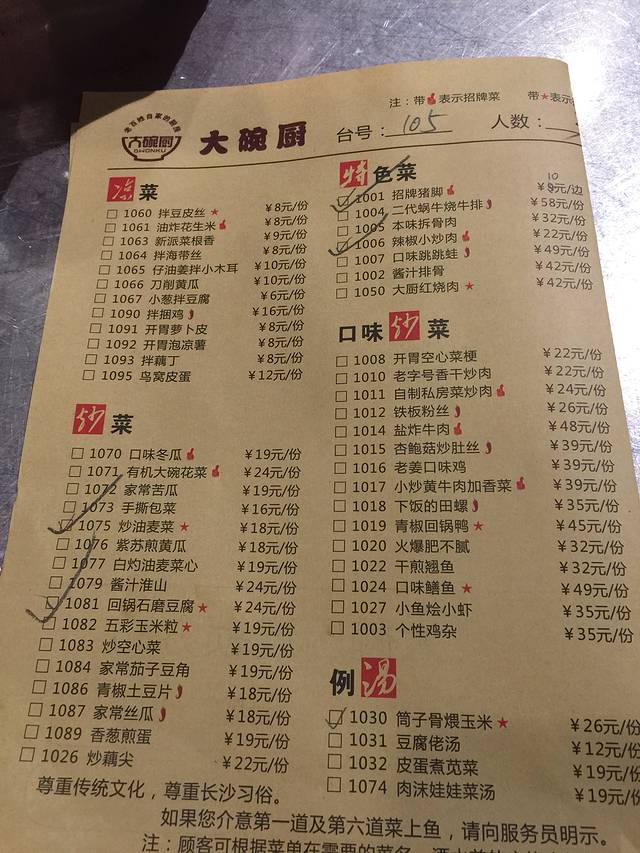 注：带表示招牌菜 带★表示
老百姓自家的厨房
大碗厨
DWONKU
大碗厨
台号：105
人数：
凉菜
1060 拌豆皮丝★ ￥8元/份
1061 油炸花生米 ￥8元/份
1063 新派菜根香 ￥9元/份
1064 拌海带丝 ￥8元/份
1065 仔油姜拌小木耳 ￥10元/份
1066 刀削黄瓜 ￥10元/份
1067 小葱拌豆腐 ￥6元/份
1090 拌捆鸡 ￥16元/份
1091 开胃萝卜皮 ￥8元/份
1092 开胃泡凉薯 ￥8元/份
1093 拌藕丁 ￥8元/份
1095 鸟窝皮蛋 ￥12元/份
炒菜
1070 口味冬瓜 ￥19元/份
1071 有机大碗花菜 ￥24元/份
1072 家常苦瓜 ￥19元/份
1073 手撕包菜 ￥16元/份
1075 炒油麦菜★ ￥18元/份
1076 紫苏煎黄瓜 ￥18元/份
1077 白灼油麦菜心 ￥19元/份
1079 酱汁淮山 ￥24元/份
1081 回锅石磨豆腐★ ￥24元/份
1082 五彩玉米粒★ ￥19元/份
1083 炒空心菜 ￥19元/份
1084 家常茄子豆角 ￥19元/份
1086 青椒土豆片 ￥18元/份
1087 家常丝瓜 ￥18元/份
1089 香葱煎蛋 ￥19元/份
1026 炒藕尖 ￥22元/份
特色菜
10
1001 招牌猪脚 ￥9元/边
1004 二代蜗牛烧牛排 ￥58元/份
1005 本味拆骨肉 ￥32元/份
1006 辣椒小炒肉 ￥22元/份
1007 口味跳跳蛙 ￥49元/份
1002 酱汁排骨 ￥42元/份
1050 大厨红烧肉★ ￥42元/份
口味炒菜
1008 开胃空心菜梗 ￥22元/份
1010 老字号香干炒肉 ￥22元/份
1011 自制私房菜炒肉 ￥24元/份
1012 铁板粉丝 ￥26元/份
1014 盐炸牛肉 ￥48元/份
1015 杏鲍菇炒肚丝 ￥39元/份
1016 老姜口味鸡 ￥39元/份
1017 小炒黄牛肉加香菜 ￥39元/份
1018 下饭的田螺 ￥35元/份
1019 青椒回锅鸭★ ￥45元/份
1020 火爆肥不腻 ￥32元/份
1022 干煎翘鱼 ￥32元/份
1024 口味鳝鱼★ ￥49元/份
1027 小鱼烩小虾 ￥35元/份
1003 个性鸡杂 ￥35元/份
例汤
1030 筒子骨煨玉米★ ￥26元/份
1031 豆腐佬汤 ￥12元/份
1032 皮蛋煮苋菜 ￥19元/份
1074 肉沫娃娃菜汤 ￥19元/份
尊重传统文化，尊重长沙习俗。
如果您介意第一道及第六道菜上鱼，请向服务员明示。
注：顾客可根据菜单在需要的菜名